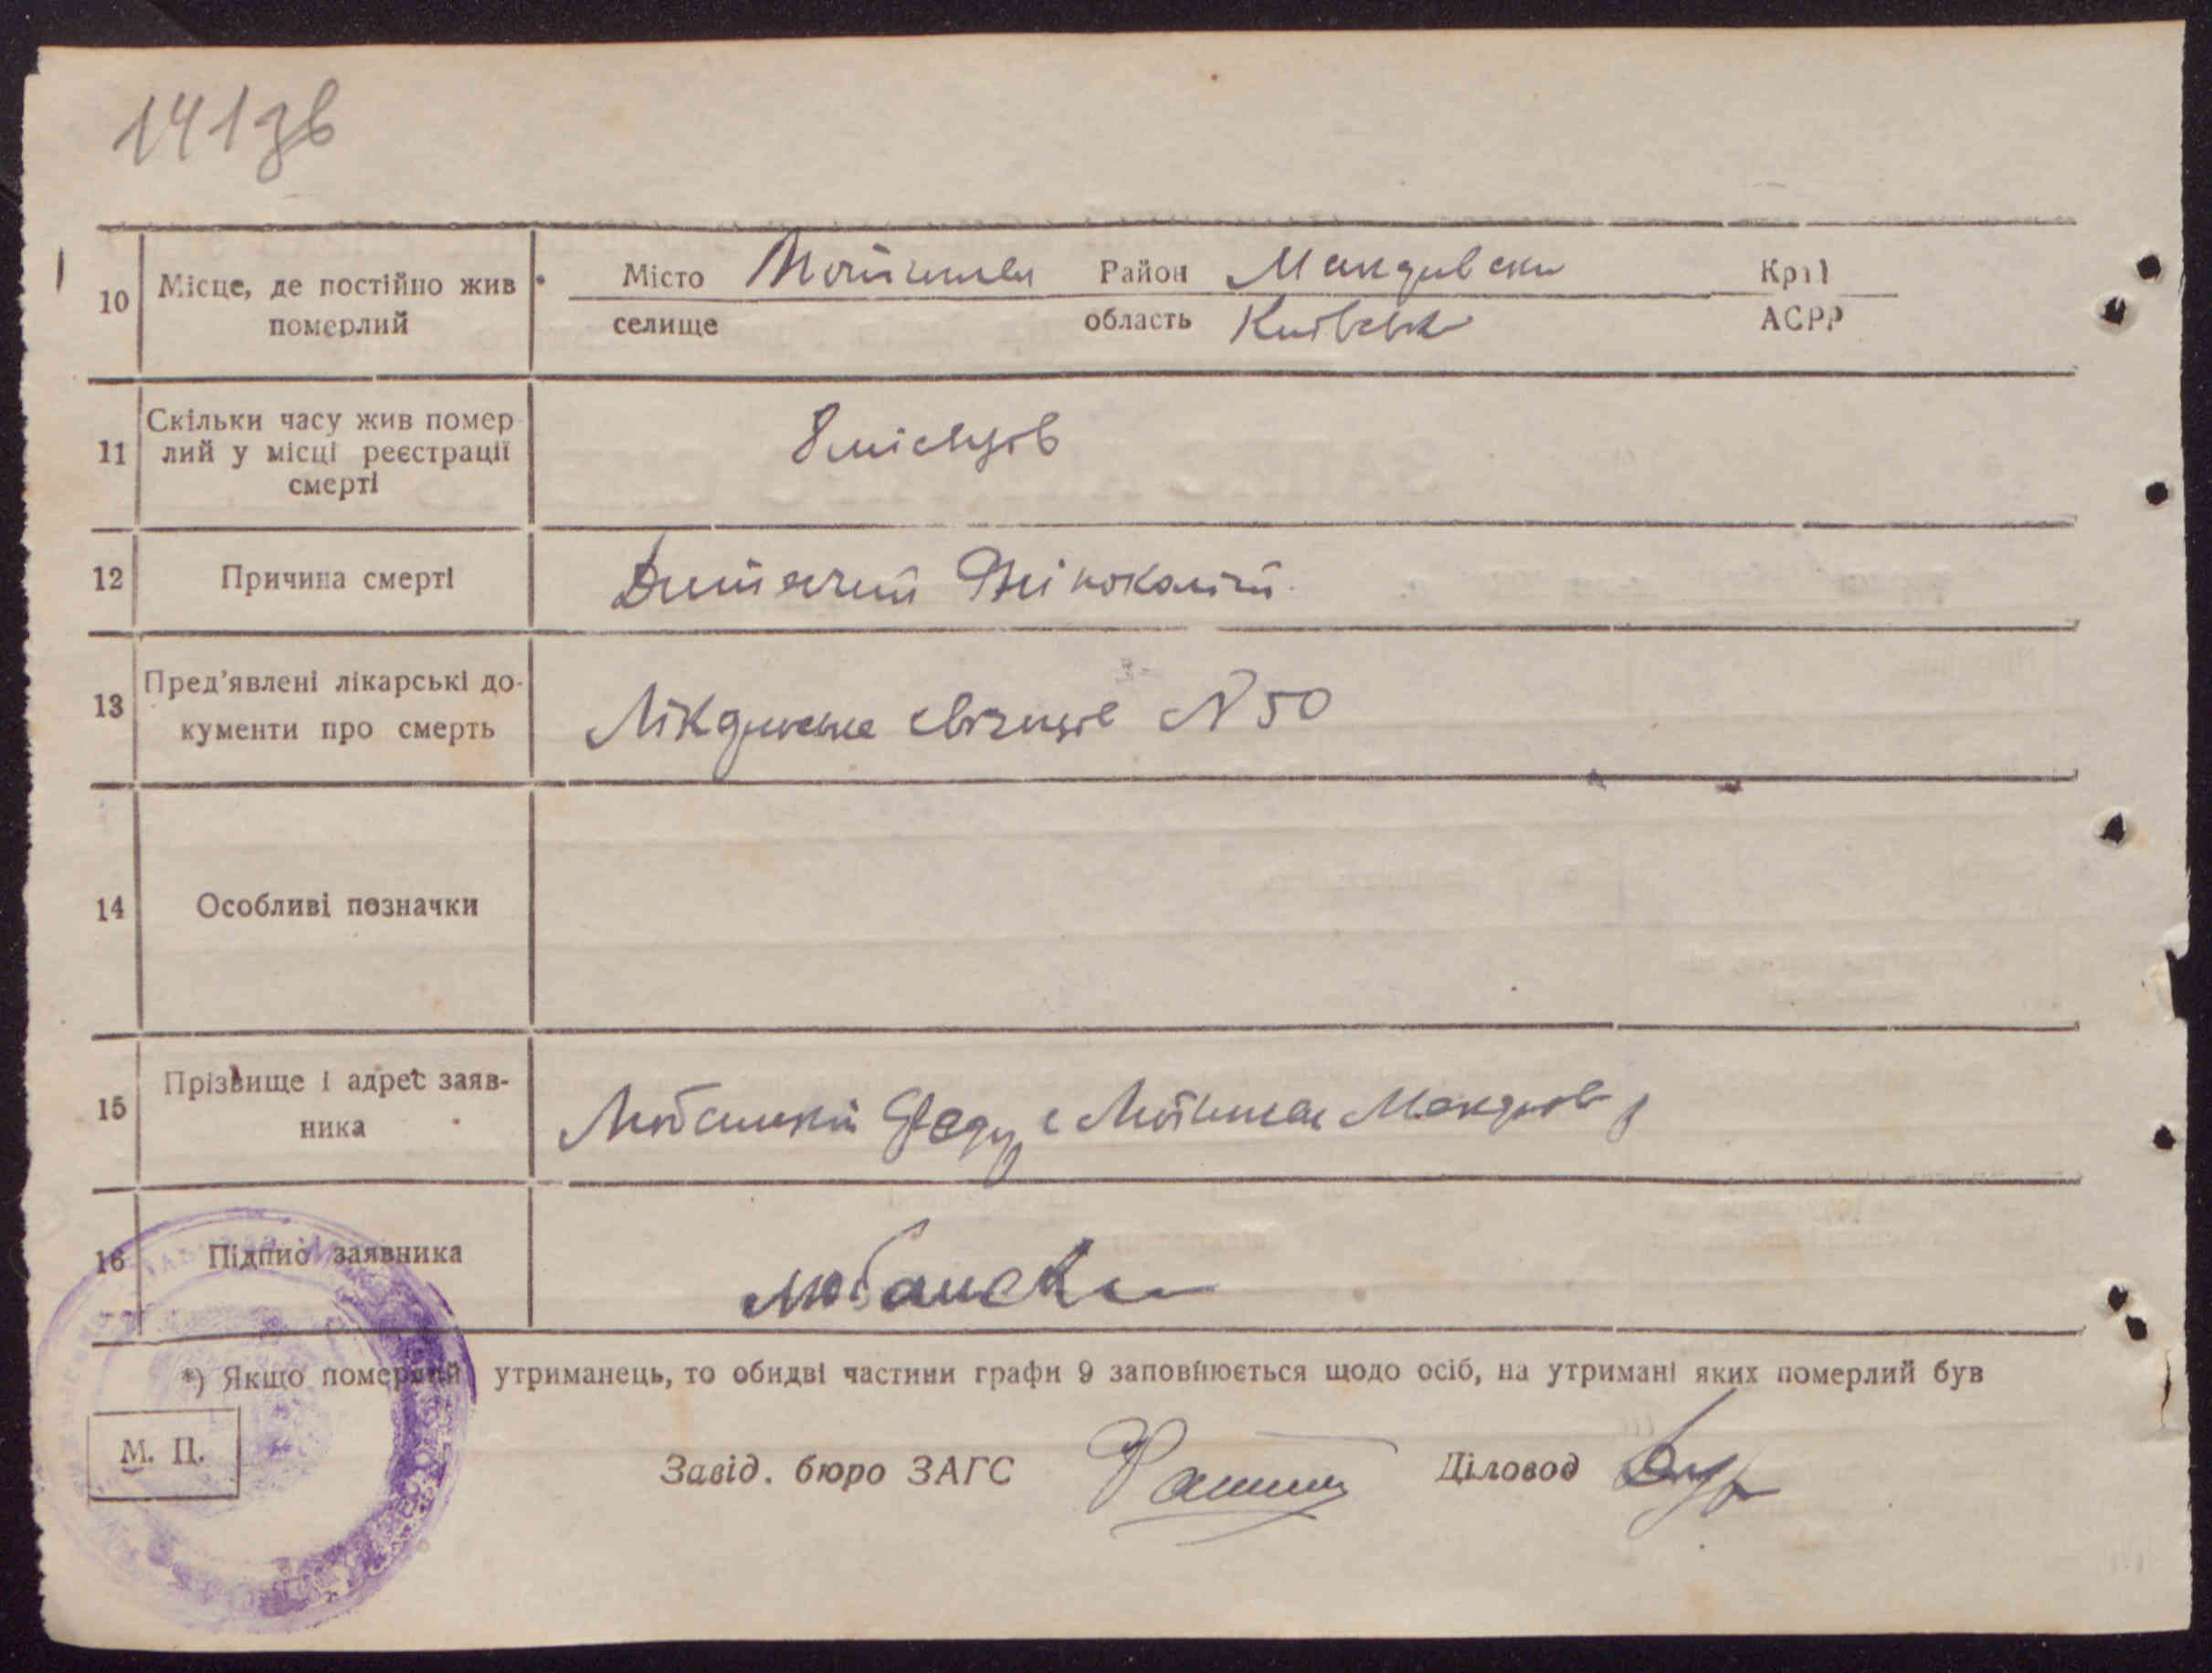 141зв
10 Місце, де постійно жив померлий
Місто Район Макарівськ Край
селище область Київськ АСРР
11 Скільки часу жив помер-
лий у місці реєстрації
смерті
8 місяців
12 Причина смерті Дитячий
13 Пред'явлені лікарські до-
кументи про смерть
Лікарське N 50
14 Особливі позначки
15 Прізвище і адрес заяв-
ника
16 Підпис заявника
Любанск
*) Якщо померлий утриманець, то обидві частини графи 9 заповнюється щодо осіб, на утримані яких померлий був
М. П.
Завід. бюро ЗАГС Діловод